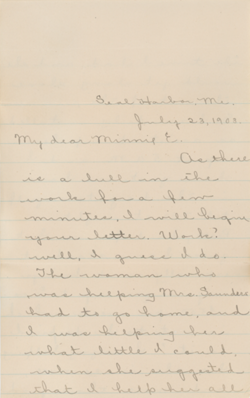 Seal Harbor, Me.
July 23, 1900.
My dear Minnie E.
As there
is a lull in the
work for a few
minutes, I will begin
your letter. Work?
well, I guess I do.
The woman who
was helping Mrs.
had to go home, and
I was helping her
what little I could,
when she suggested
that I help her all